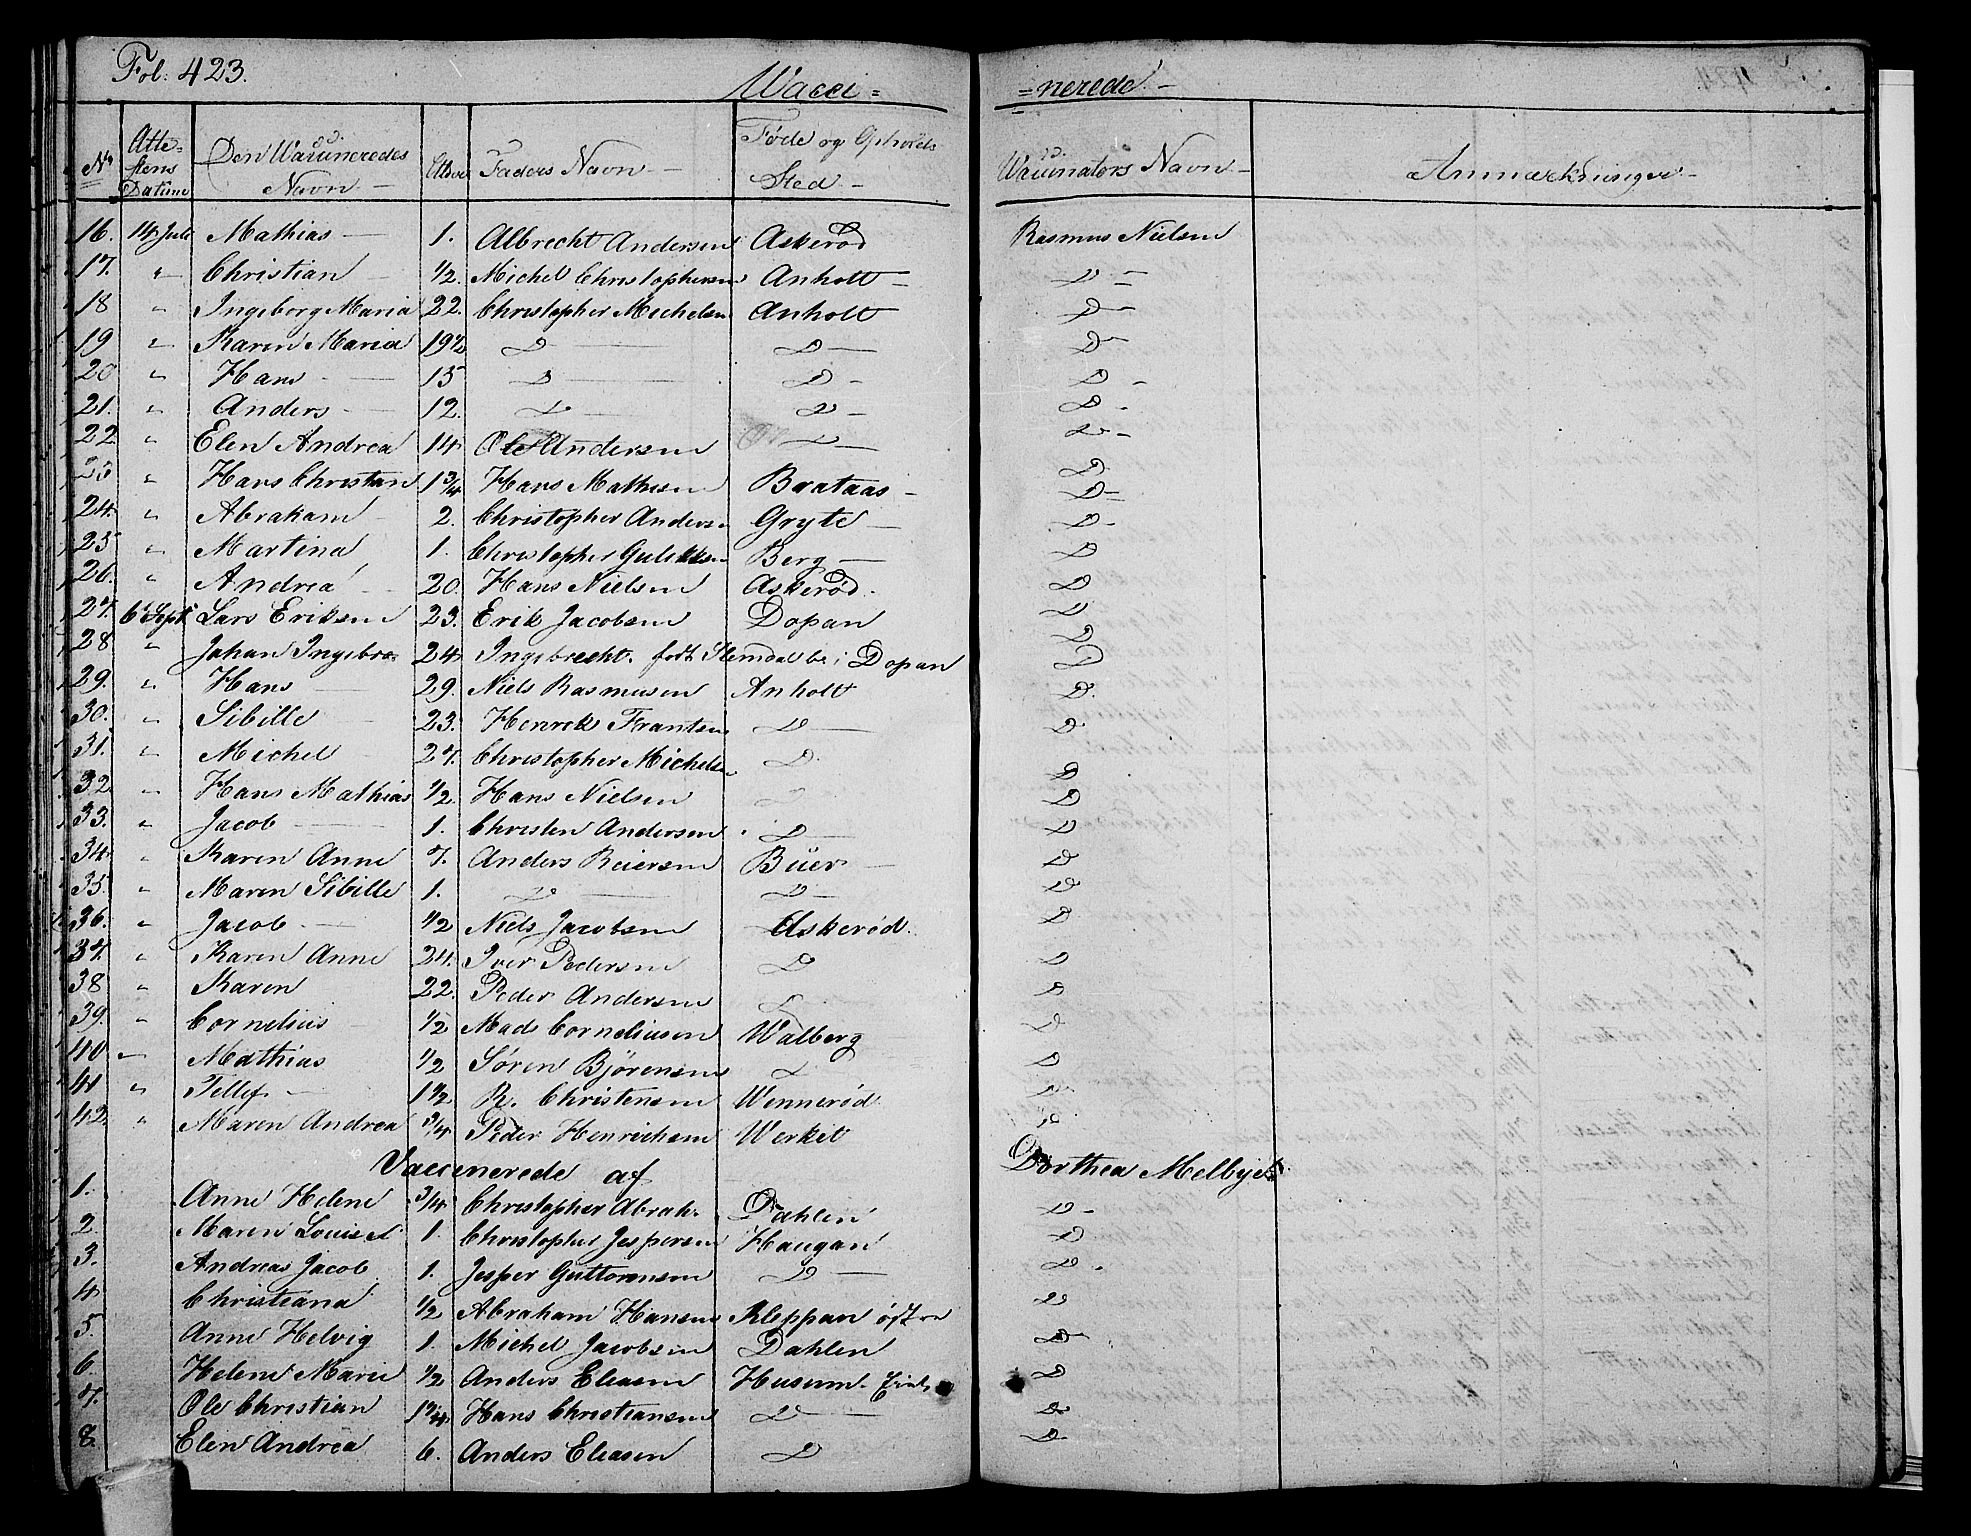 Fol. 423.
Wacci= =nerede.
No Atte-stens Datum Den Waccineredes Navn Alder Faders Navn Føde og Opholds Sted Waccinators Navn Anmærkninger
16. 14 Juli Mathias 1. Albrecht Andersen Askerød Rasmus Nielsen
17. " Christian 1/2 Michel Christophersen Anholt D
18 " Ingeborg Maria 22. Christopher Michelsen Anholt D
19 " Karen Maria 19 1/2 D D D
20 " Hans 15 D D D
21. " Anders 12. D D D
22 " Elen Andrea 14 Ole Andersen D D
23 " Hans Christian 1 3/4 Hans Mathisen Brataas D
24. " Abraham 2. Christopher Anders: Gryte D
25 " Martina 1. Christopher Guliksen Berg D
26. " Andrea 20. Hans Nielsen Askerød. D
27. 6t Sept Lars Eriksen 23. Erik Jacobsen Dopan D
28 " Johan Ingebre 24 Ingebrecht. født Slemdal bo i Dopan D
29. " Hans 29. Niels Rasmusen Anholt D.
30. " Sibille 23. Henrek Frantsen D D
31. " Michel 27. Christopher Michelsen D D
32. " Hans Mathias 1/2 Hans Nielsen D D
33. " Jacob 1. Christen Andersen D D
34. " Karen Anne 7. Anders Reiersen Büer D
35. " Maren Sibille 1. D D D
36. " Jacob 1/2 Niels Jacobsen Askerød. D
37. " Karen Anne 24. Iver Pedersen D D
38 " Karen 22. Peder Andersen D D
39. " Cornelius 1/2 Mads Corneliusen Walberg D
40 " Mathias 1/2 Søren Bjørensen D D
41 " Tellef 1 1/2 R. Christensen Wennerød D
42. " Maren Andrea 3/4 Peder Henrichsen Werket D
Vaccenerede af Dorthea Melbye
1. Anne Helene 3/4 Christopher Abrah: Dahlen D
2. Maren Louise 1. Christopher Jespersen Haugan D
3. Andreas Jacob 1. Jesper Guttormsen D D
4 Christiana 1/2 Abraham Hansen Kleppan østre D
5. Anne Helvig 1. Michel Jacobsen Dahlen D
6. Helene Marie 1/2 Anders Eliasen Husum D
7. Ole Christian 1 3/4 Hans Christiansen D D
8. Elen Andrea 6. Anders Eleasen D D